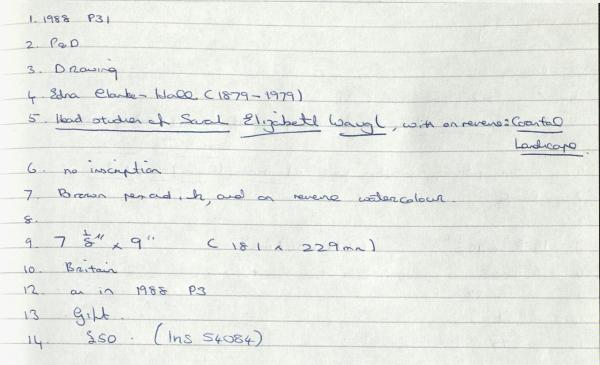 1. 1988 P31
2. P&D
3. Drawing
4. Edna Clarke-Hall (1879-1979)
5. Head studies of Sarah Elizabeth Waugh, with on reverse: Coastal
Landscape.
6. no inscription
7. Brown pen and ink, and on reverse watercolour.
8.
9. 7 1/8" x 9" (181 x 229mm)
10. Britain
12. as in 1988 P3
13 Gift.
14. £50. (Ins 54084)